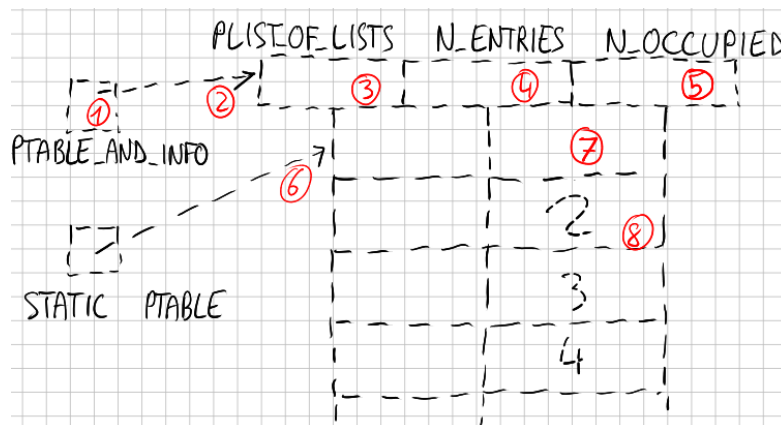 PLIST_OF_LISTS N_ENTRIES N_OCCUPIED
1 2 3 4 5
PTABLE_AND_INFO
7
6
2 8
STATIC PTABLE
3
4